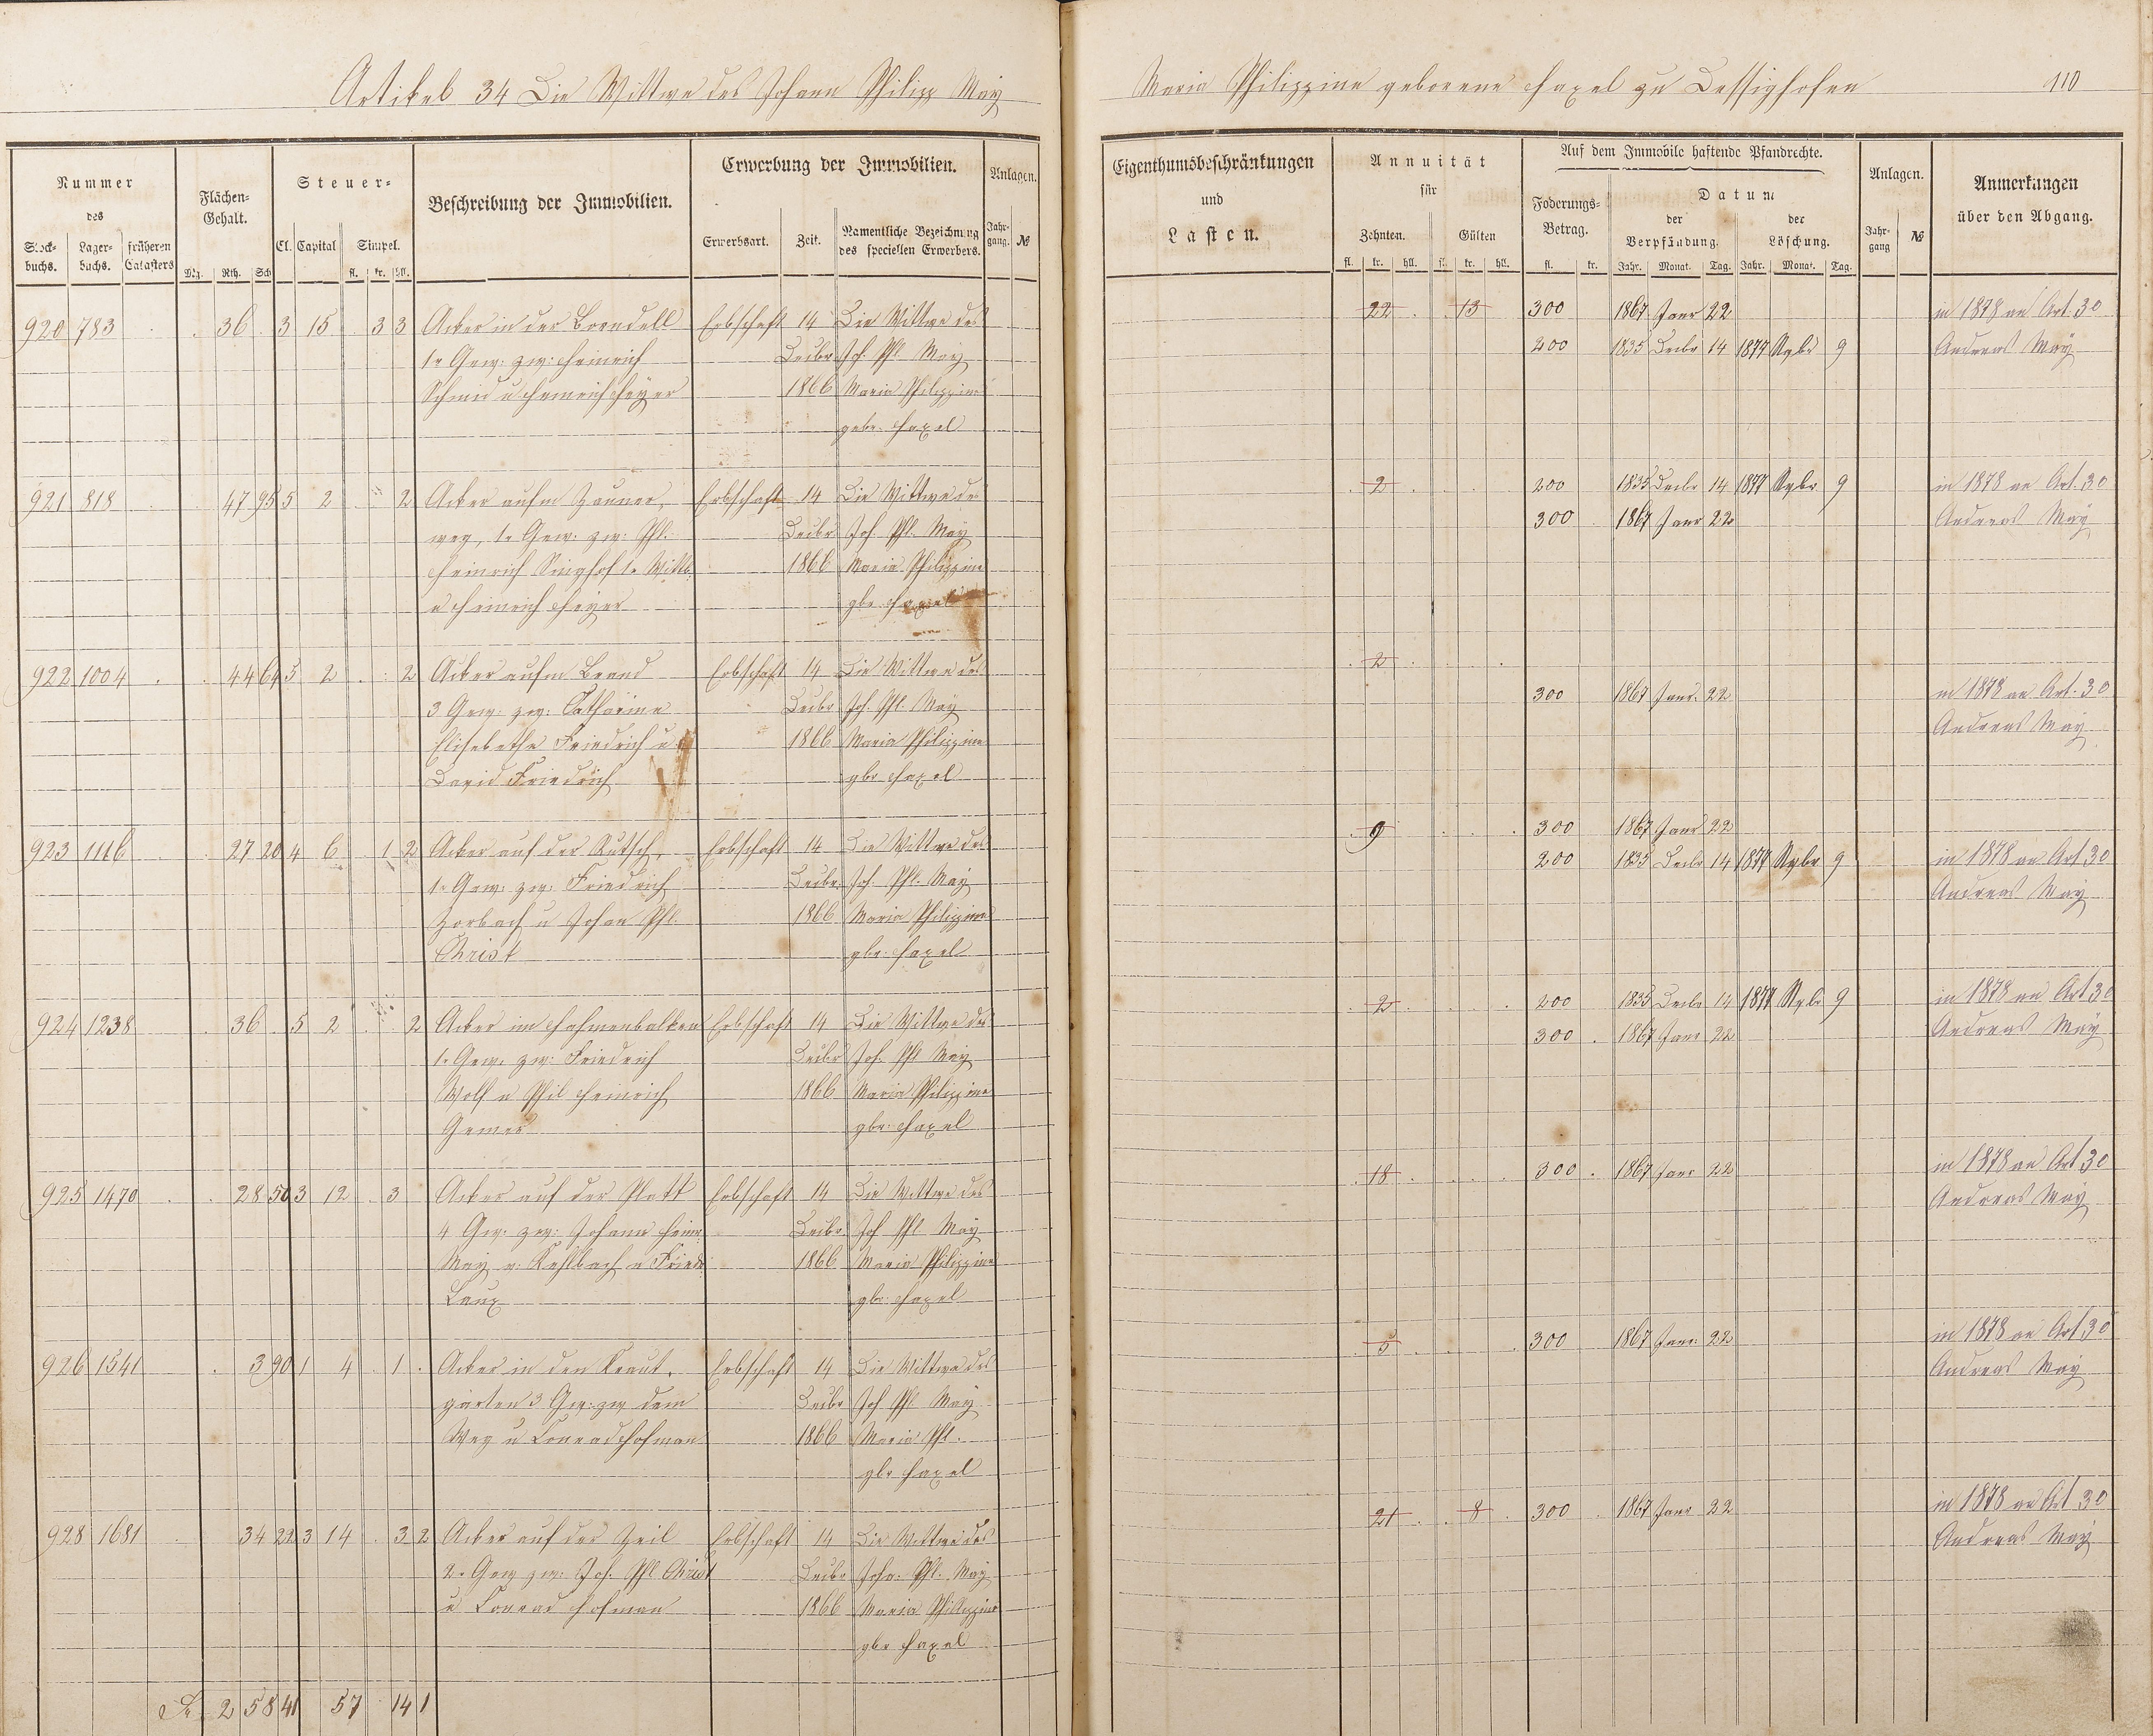 Artikel 34 Die Wittwe des Johann Philipp May
Maria Philippine geborene Haxel zu Dessighofen
110
Nummer
des
Stock-
buchs.
Lager-
buchs.
früheren
Catasters
Flächen-
Gehalt.
Mg. Rth. Sch
Steuer-
Cl. Capital Simpel.
fl. kr. hll.
Beschreibung der Immobilien.
Erwerbung der Immobilien.
Erwerbsart. Zeit.
Namentliche Bezeichnung
des speciellen Erwerbers.
Anlagen.
Jahr-
gang. №
Eigenthumsbeschränkungen
und
Lasten.
Annuität
für
Zehnten. Gülten
fl. kr. hll. fl. kr. hll.
Auf dem Immobile haftende Pfandrechte.
Foderungs-
Betrag.
fl. kr.
Datum
der
Verpfändung.
der
Löschung.
Jahr. Monat. Tag. Jahr. Monat. Tag.
Anlagen.
Jahr-
gang №
Anmerkungen
über den Abgang.
920 783 36 3 15 3 3 Acker in der Borndell Erbschaft 14 Die Wittwe des
1r Gew: zw: Heinrich Decbr Joh. Phl. May
Schmid u Heinrich Heyer 1866 Maria Philippine
gebr. Haxel
22 13 300 1867 Janr 22 in 1878 an Art. 30
200 1835 Decbr 14 1877 Novbr 9 Andreas May
921 818 47 95 5 2 2 Acker aufm Zauner, Erbschaft 14 Die Wittwe des
weg, 1r Gew: zw: Phl. Decbr Joh. Phl. May
Heinrich Singhof 1r Wittb. 1866 Maria Philippine
u Heinrich Heyer gbr. Haxel
2 200 1835 Decbr 14 1877 Novbr 9 in 1878 an Art. 30
300 1867 Janr 22 Andreas May
922 1004 44 64 5 2 2 Acker aufm Brand Erbschaft 14 Die Wittwe des
3 Gew: zw: Catharine Decbr Joh. Phl. May
Elisabethe Friedrich u 1866 Maria Philippine
David Friedrich gbr Haxel
2
300 1867 Janr. 22 in 1878 an Art. 30
Andreas May
923 1116 27 20 4 6 1 2 Acker auf der Rutsch, Erbschaft 14 Die Wittwe des
1r Gew: zw: Friedrich Decbr. Joh. Phl. May
Zorbach u Johan Phl. 1866 Maria Philippine
Christ gbr: Haxel
9 300 1867 Janr 22
200 1835 Decbr 14 1877 Novbr 9 in 1878 an Art 30
Andreas May
924 1238 36 5 2 2 Acker im Hahmenbalken Erbschaft 14 Die Wittwe des
1r Gew. zw: Friedrich Decbr Joh. Phl May
Wolf u Phil Heinrich 1866 Maria Philippine
Gemer gbr: Haxel
2 200 1835 Decbr 14 1877 Novbr 9 in 1878 an Art 30
300 1867 Janr 22 Andreas May
925 1470 28 50 3 12 3 Acker auf der Platt Erbschaft 14 Die Wittwe des
4 Gw. zw: Johann Heinr. Decbr. Joh Phl May
May v. Kehlbach u Friedr 1866 Maria Philippine
Laux gbr: Haxel
18 300 1867 Janr 22 in 1878 an Art. 30
Andreas May
926 1541 3 90 1 4 1 Acker in den Kraut, Erbschaft 14 Die Wittwe des
gärten 3 Gw: zw dem Decbr Joh Phl May
Weg u Conrad Hofman 1866 Maria Phl.
gbr Haxel
5 300 1867 Janr. 22 in 1878 an Art 30
Andreas May
928 1681 34 22 3 14 3 2 Acker auf der Heil Erbschaft 14 Die Wittwe des
2r Gew zw: Joh. Phl Christ Decbr Joha. Phl. May
u Conrad Hofman 1866 Maria Philippine
gbr Haxel
21 8 300 1867 Janr 22 in 1878 an Art 30
Andreas May
2 58 41 57 14 1